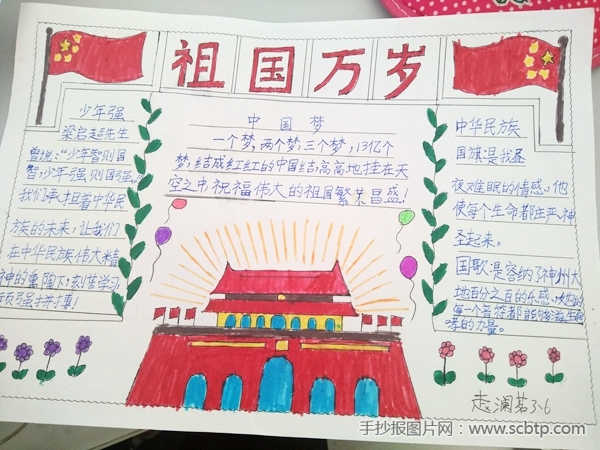 祖国万岁
少年强
梁启超先生
曾说:“少年智则国
智,少年强则国强。”
我们承担着中华民
族的未来,让我们
在中华民族伟大精
神的熏陶下,刻苦学习
顽强拼搏!
中国梦
一个梦,两个梦,三个梦,13亿个
梦,结成红红的中国结,高高地挂在天
空之中,祝福伟大的祖国繁荣昌盛!
中华民族
国旗是我昼
夜难眠的情感,他
使每个生命都庄严神
圣起来。
国歌是容纳了神州大
地百分之百的乐感,
每一个音符都能
的力量。
赵澜茗3、6
手抄报图片网:www.scbtp.com